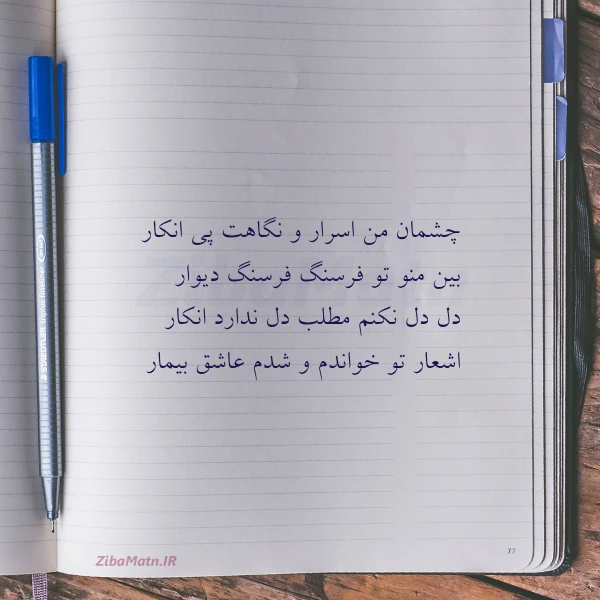 چشمان من اسرار و نگاهت پی انکار
بین منو تو فرسنگ فرسنگ دیوار
دل دل نکنم مطلب دل ندارد انکار
اشعار تو خواندم و شدم عاشق بیمار
ZibaMatn.IR